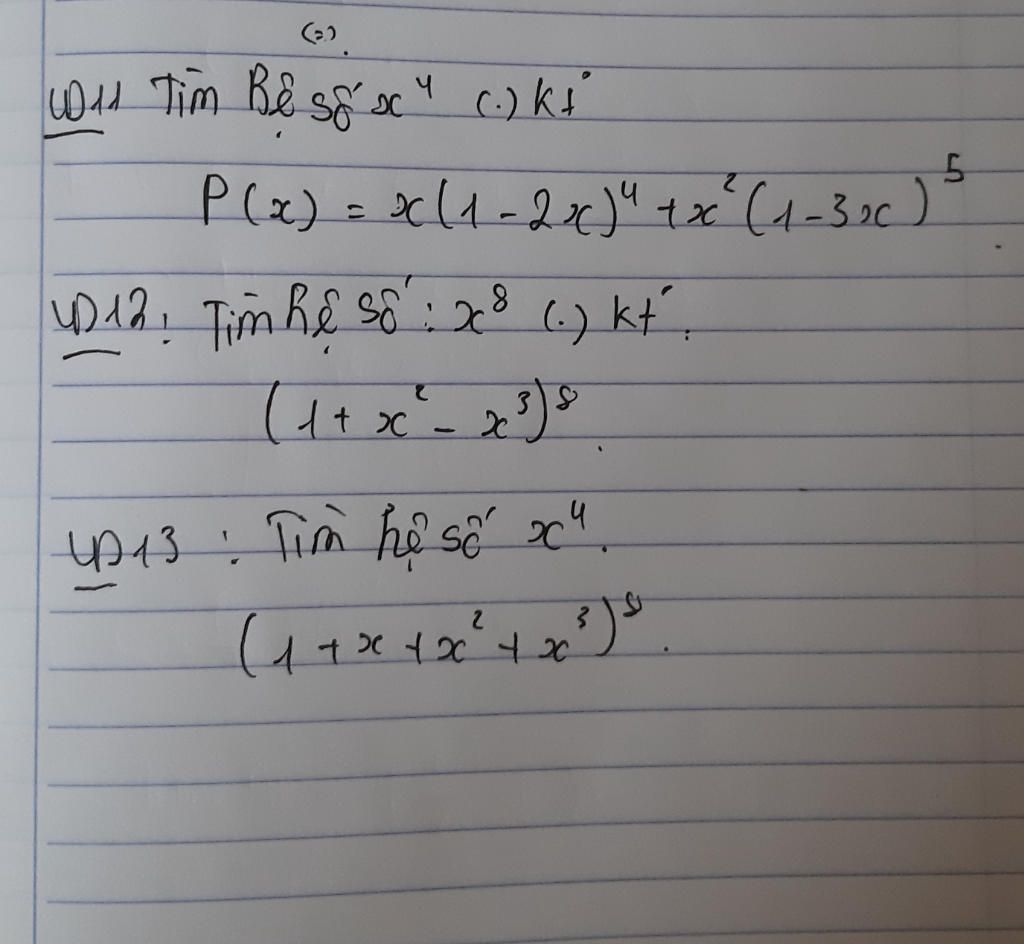 (=).
VD11 Tìm hệ số x⁴ (.) kt
P(x) = x(1-2x)⁴ + x²(1-3x)⁵
VD12: Tìm hệ số: x⁸ (.) kt.
(1 + x² - x³)⁸.
VD13 : Tìm hệ số x⁴.
(1 + x + x² + x³)⁸.